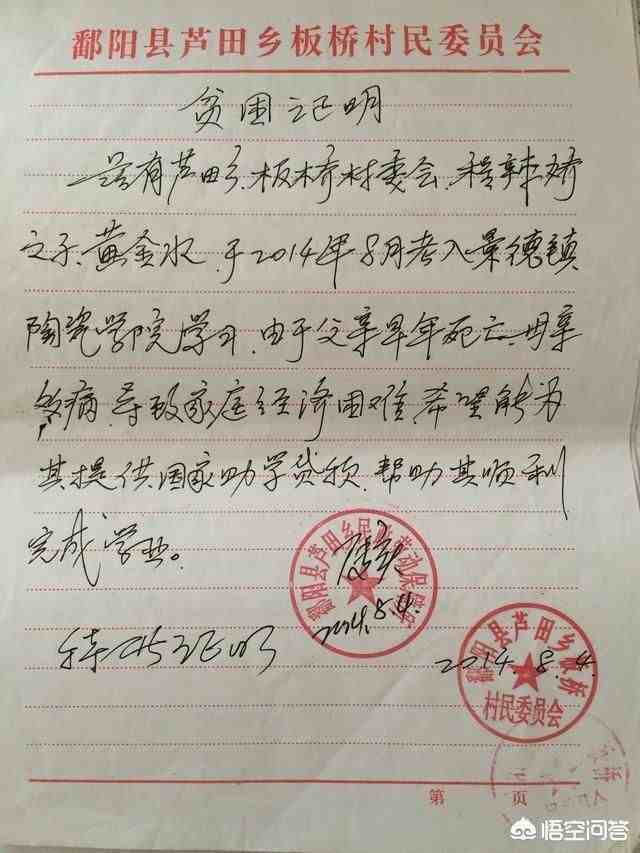 鄱阳县芦田乡板桥村民委员会
贫困证明
兹有芦田乡板桥村委会,程辣娇
之子:黄金水,于2014年8月考入景德镇
陶瓷学院学习,由于父亲早年死亡,母亲
多病,导致家庭经济困难,希望能为
其提供国家助学贷款,帮助其顺利
完成学业。
属实
2014.8.4.
特此证明
2014.8.4.
鄱阳县芦田乡民政劳动保障所
鄱阳县芦田乡板桥
村民委员会
第 页
悟空问答